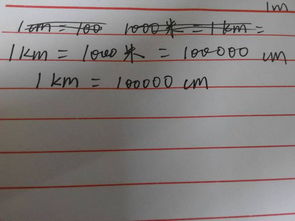 1m
1cm = 100 1000米 = 1km =
1km = 1000米 = 100000cm
1km = 100000cm